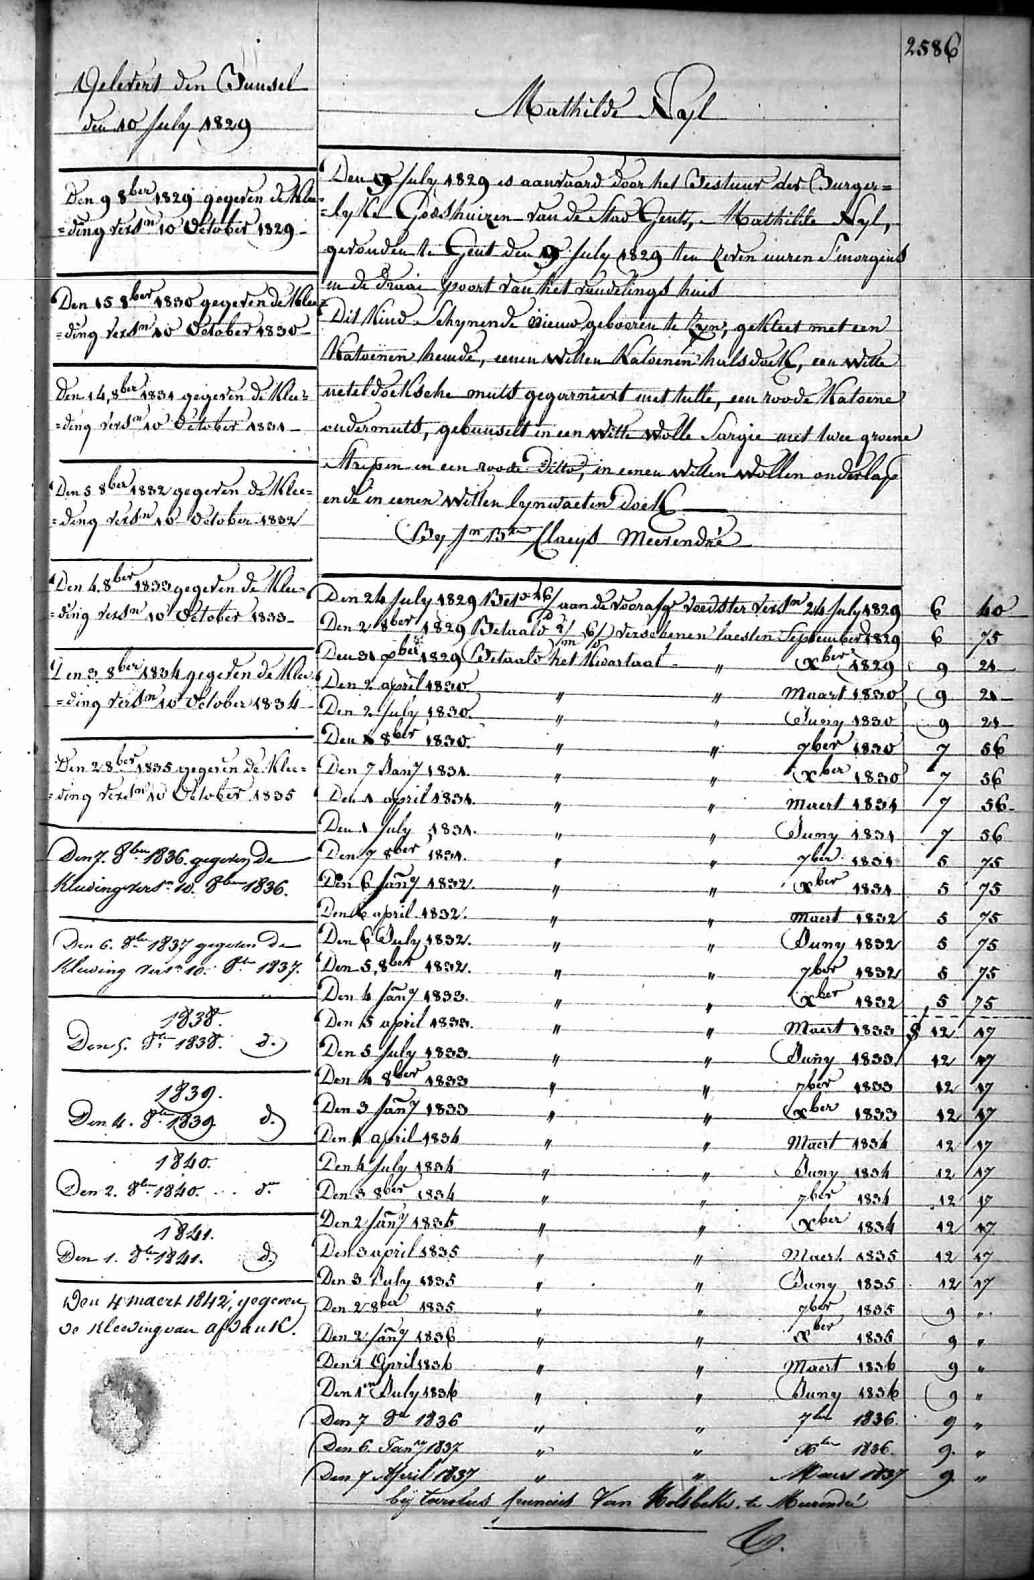 2586
Gelevert den Bunsel
den 10 July 1829
Den 9 8ber 1829 gegeven de Klee=
=ding versn 10 October 1829
Den 15 8ber 1830 gegeven de Klee=
=ding versn 10 October 1830
Den 14, 8ber 1831 gegeven de Klee=
=ding versn 10 October 1831
Den 5 8ber 1832 gegeven de Klee=
=ding versn 10 October 1832
Den 4 8ber 1833 gegeven de Klee=
=ding versn 10 October 1833
Den 3 8ber 1834 gegeven de Klee=
=ding versn 10 October 1834
Den 2 8ber 1835 gegeven de Klee=
=ding versn 10 October 1835
Den 7. 8ber 1836 gegeven de
Kleeding versn 10. 8ber 1836.
Den 6. 8br 1837 gegeven de
Kleeding versn 10. 8br 1837.
1838.
Den 5. 8br 1838. d.
1839.
Den 4. 8br 1839 d.
1840.
Den 2. 8br 1840. .. do
1841.
Den 1. 8br 1841. d.
Den 4 maert 1842, gegeven
de Kleeding van afdank.
Mathilde Nyl
Den 9 July 1829 is aanvaard door het Bestuur der Burger=
=lyke Godshuizen van de Stad Gent, Mathilde Nyl,
gevonden te Gent den 9 July 1829 ten zeven uuren S'morgens
in de draai poort van het vondelings huis
Dit Kind Schynende nieuw gebooren te Zyn, gekleet met een
Katoenen hemde, eenen witten Katoenen halsdoek, een witte
neteldoeksche muts gegarniert met tulle, een roode Katoene
ondermuts, gebunselt in een witte wolle Sargie met twee groene
Strepen en een roode ditto, in eenen witten wollen onderlap
ende in eenen witten lynwaeten doek
By Claeys Meerendré
Den 24 July 1829 aan de voorafge voedster versn 24 July 1829 6 40
Den 2 8ber 1829 Betaald verschenen laesten September 1829 6 75
Den 31 xber 1829 Betaald het Kwartaal " xber 1829 9 21
Den 2 april 1830 " " Maart 1830 9 21
Den 2 July 1830. " " Juny 1830 9 21
Den 8ber 1830. " " 7ber 1830 7 56
Den 7 Jany 1831. " " xber 1830 7 56
Den 1 april 1831. " " Maert 1831 7 56
Den 1 July 1831. " " Juny 1831 7 56
Den 7 8ber 1831. " " 7ber 1831 5 75
Den 6 Jany 1832. " " xber 1831 5 75
Den 6 april 1832. " " Maert 1832 5 75
Den 6 July 1832. " " Juny 1832 5 75
Den 5, 8ber 1832. " " 7ber 1832 5 75
Den 4 Jany 1833. " " xber 1832 5 75
Den 5 april 1833. " " Maert 1833 12 17
Den 5 July 1833. " " Juny 1833 12 17
Den 4 8ber 1833 " " 7ber 1833 12 17
Den 3 Jany 1833 " " xber 1833 12 17
Den 4 april 1834 " " Maert 1834 12 17
Den 4 July 1834 " " Juny 1834 12 17
Den 3 8ber 1834 " " 7ber 1834 12 17
Den 2 Jany 1835 " " xber 1834 12 17
Den 3 april 1835 " " Maert 1835 12 17
Den 3 July 1835 " " Juny 1835 12 17
Den 2 8ber 1835 " " 7ber 1835 9 "
Den 2 Jany 1836 " " xber 1835 9 "
Den 1 April 1836 " " Maert 1836 9 "
Den 1en July 1836 " " Juny 1836 9 "
Den 7 8br 1836 " " 7ber 1836. 9 "
Den 6. Jany 1837 " " xber 1836. 9. "
Den 7 April 1837 " " Maers 1837 9 "
bij francies Van Holsbeke te Meerendré